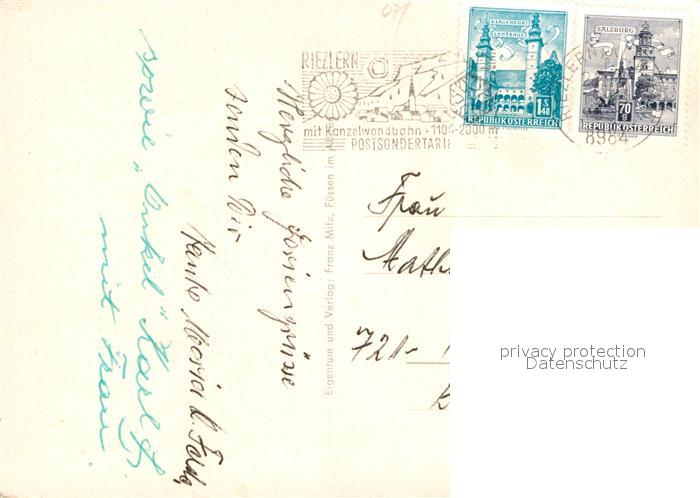 07
RIEZLERN
mit Kanzelwandbahn - 1100-2000 m
POSTSONDERTARIF
KLAGENFURT
LANDHAUS
1 S 40
REPUBLIK ÖSTERREICH
SALZBURG
70 g
REPUBLIK ÖSTERREICH
RIEZLERN
Herzliche Feriengrüsse
senden Dir
Tante Maria
sowie "Onkel" Karl
mit Frau
Eigentum und Verlag: Franz Milz, Füssen im
Frau
Math
721-
privacy protection
Datenschutz